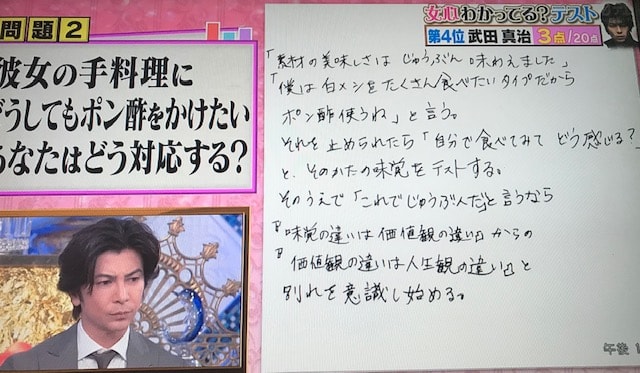 問題2
彼女の手料理に
どうしてもポン酢をかけたい
あなたはどう対応する?
女心わかってる?テスト
第4位 武田 真治 3点/20点
「素材の美味しさは じゅうぶん 味わえました」
「僕は白メシをたくさん食べたいタイプだから
ポン酢使うね」と言う。
それを止められたら「自分で食べてみて どう感じる?」
と、そのかたの味覚をテストする。
そのうえで「これでじゅうぶんだ」と言うなら
『味覚の違いは価値観の違い』からの
『価値観の違いは人生観の違い』と
別れを意識し始める。
午後